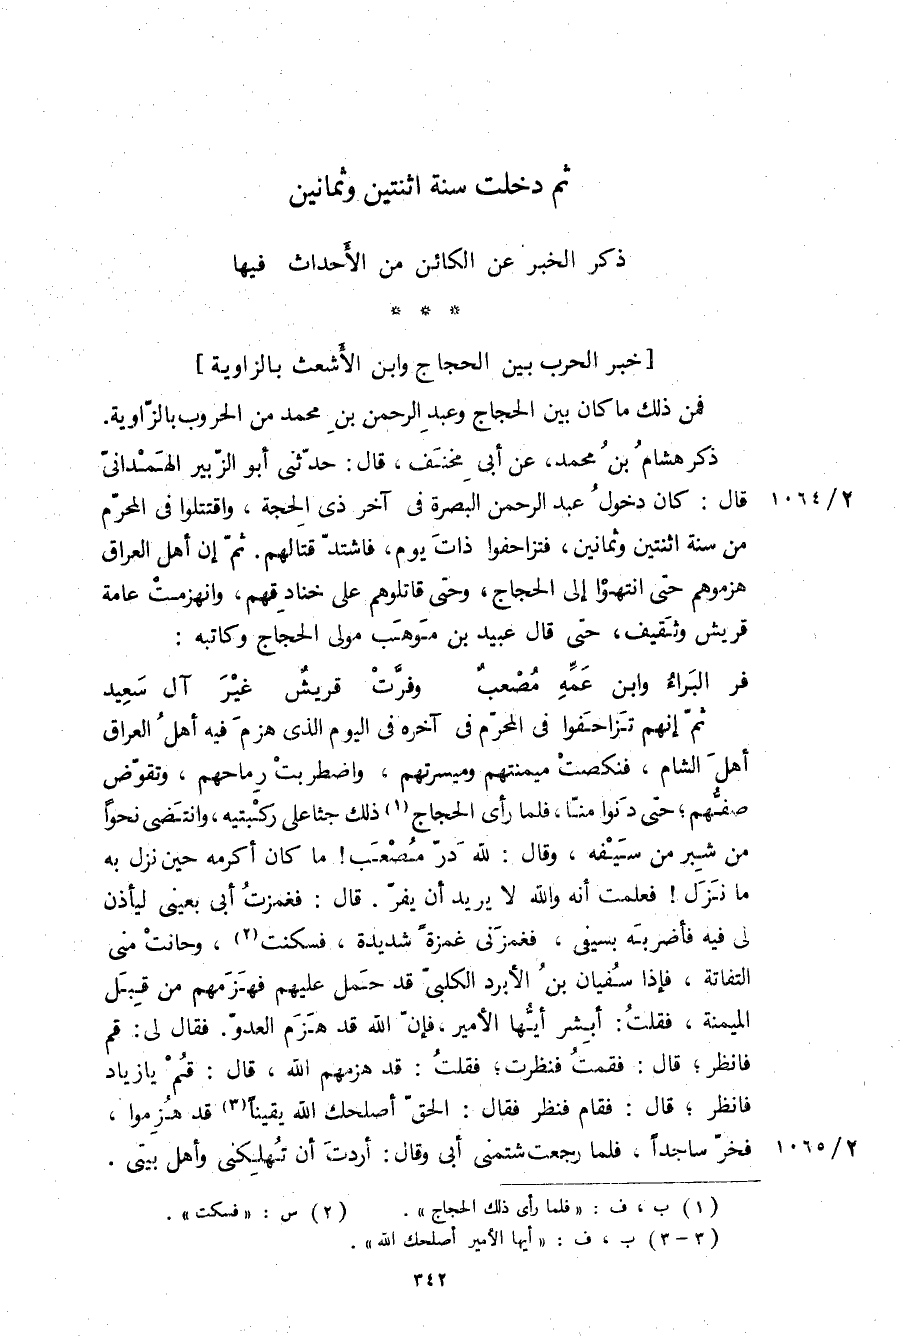 ثم دخلت سنة اثنتين وثمانين
ذكر الخبر عن الكائن من الأَحداث فيها
* * *
[ خبر الحرب بين الحجاج وابن الأَشعث بالزاوية ]
فمن ذلك ما كان بين الحجاج وعبد الرحمن بنِ محمد من الحروب بالزّاوية.
ذكر هشامُ بنُ محمد، عن أبي مِخنَف ، قال: حدّثنى أبو الزّبير الهَمْدانىّ
قال : كان دخولُ عبد الرحمن البصرة فى آخر ذى الحِجة ، واقتتلوا فى المحرّم ١٠٦٤/٢
من سنة اثنتين وثمانين ، فتزاحفوا ذاتَ يوم، فاشتدّ قتالهم. ثمّ إن أهل العراق
هزموهم حتّى انتهوْا إلى الحجاج ، وحتّى قاتلوهم على خنادِقهم، وانهزمتْ عامة
قريش وثَقيف، حتّى قال عبيد بن مَوهَب مولى الحجاج وكاتبه :
فر البَراءُ وابن عَمِّهِ مُصْعبٌ وفرَّتْ قريشٌ غيْرَ آل سَعِيد
ثمّ إنهم تَزاحَفوا فى المحرّم فى آخره فى اليوم الذى هزمَ فيه أهلُ العراق
أهلَ الشام ، فنكصتْ ميمنتهم وميسرتهم ، واضطربتْ رِماحهم ، وتقوّض
صفُّهم؛ حتّى دَنوا منّا ، فلما رأى الحجاج (١) ذلك جثا على ركْبتيه ، وانتَضى نحواً
من شِبر من سَيْفه ، وقال : لله دَرّ مُصْعَب! ما كان أكرمه حين نزل به
ما نَزَل ! فعلمت أنه والله لا يريد أن يفرّ . قال : فغمزتُ أبى بعينى ليأذن
لى فيه فأضربَه بسيفى ، فغمزَنى غمزةً شديدة ، فسكنت (٢) ، وحانتْ منى
التفاتة ، فإذا سُفيان بنُ الأبرد الكلبىّ قد حَمل عليهم فهَزَمهم من قِبَل
الميمنة ، فقلتُ: أبشِر أيّها الأمير ، فإنّ الله قد هَزَم العدوّ. فقال لى: قم
فانظر ؛ قال : فقمتُ فنظرت؛ فقلتُ : قد هزمهم الله ، قال : قُمْ يا زياد
فانظر ؛ قال : فقام فنظر فقال : الحقّ أصلحك الله يقيناً (٣) قد هُزِموا ،
فخرّ ساجداً ، فلما رجعت شتمنى أبى وقال: أردتَ أن تُهلِكنى وأهل بيتى . ١٠٦٥/٢
(١) ب ، ف : « فلما رأى ذلك الحجاج » . (٢) س : « فسكت » .
(٣ - ٣) ب ، ف : « أيها الأمير أصلحك الله » .
٣٤٢